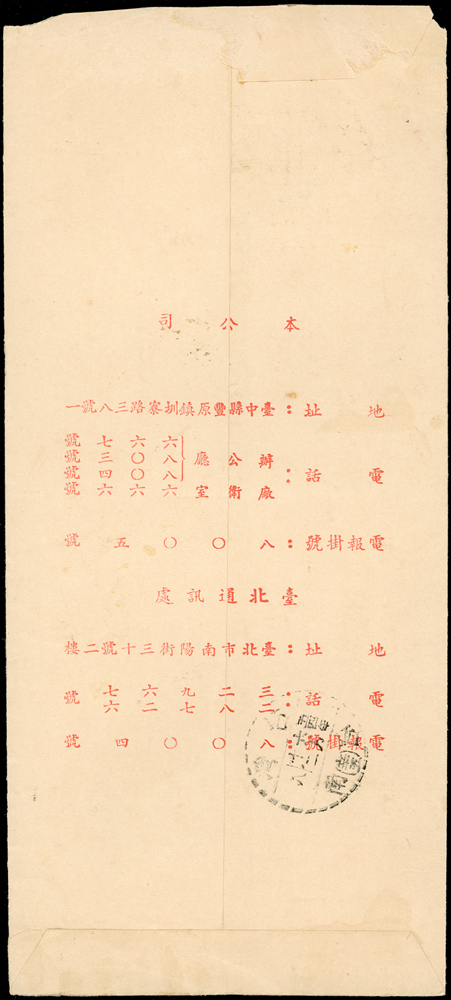 本公司
地址：臺中縣豐原鎮圳寮路三八號一
電話：辦公廳
六六七號
八〇三號
八〇四號
廠衛室六六六號
電報掛號：八〇〇五號
臺北通訊處
地址：臺北市南陽街三十號二樓
電話：三二九六七號
二八七二六
電報掛號：八〇〇四號